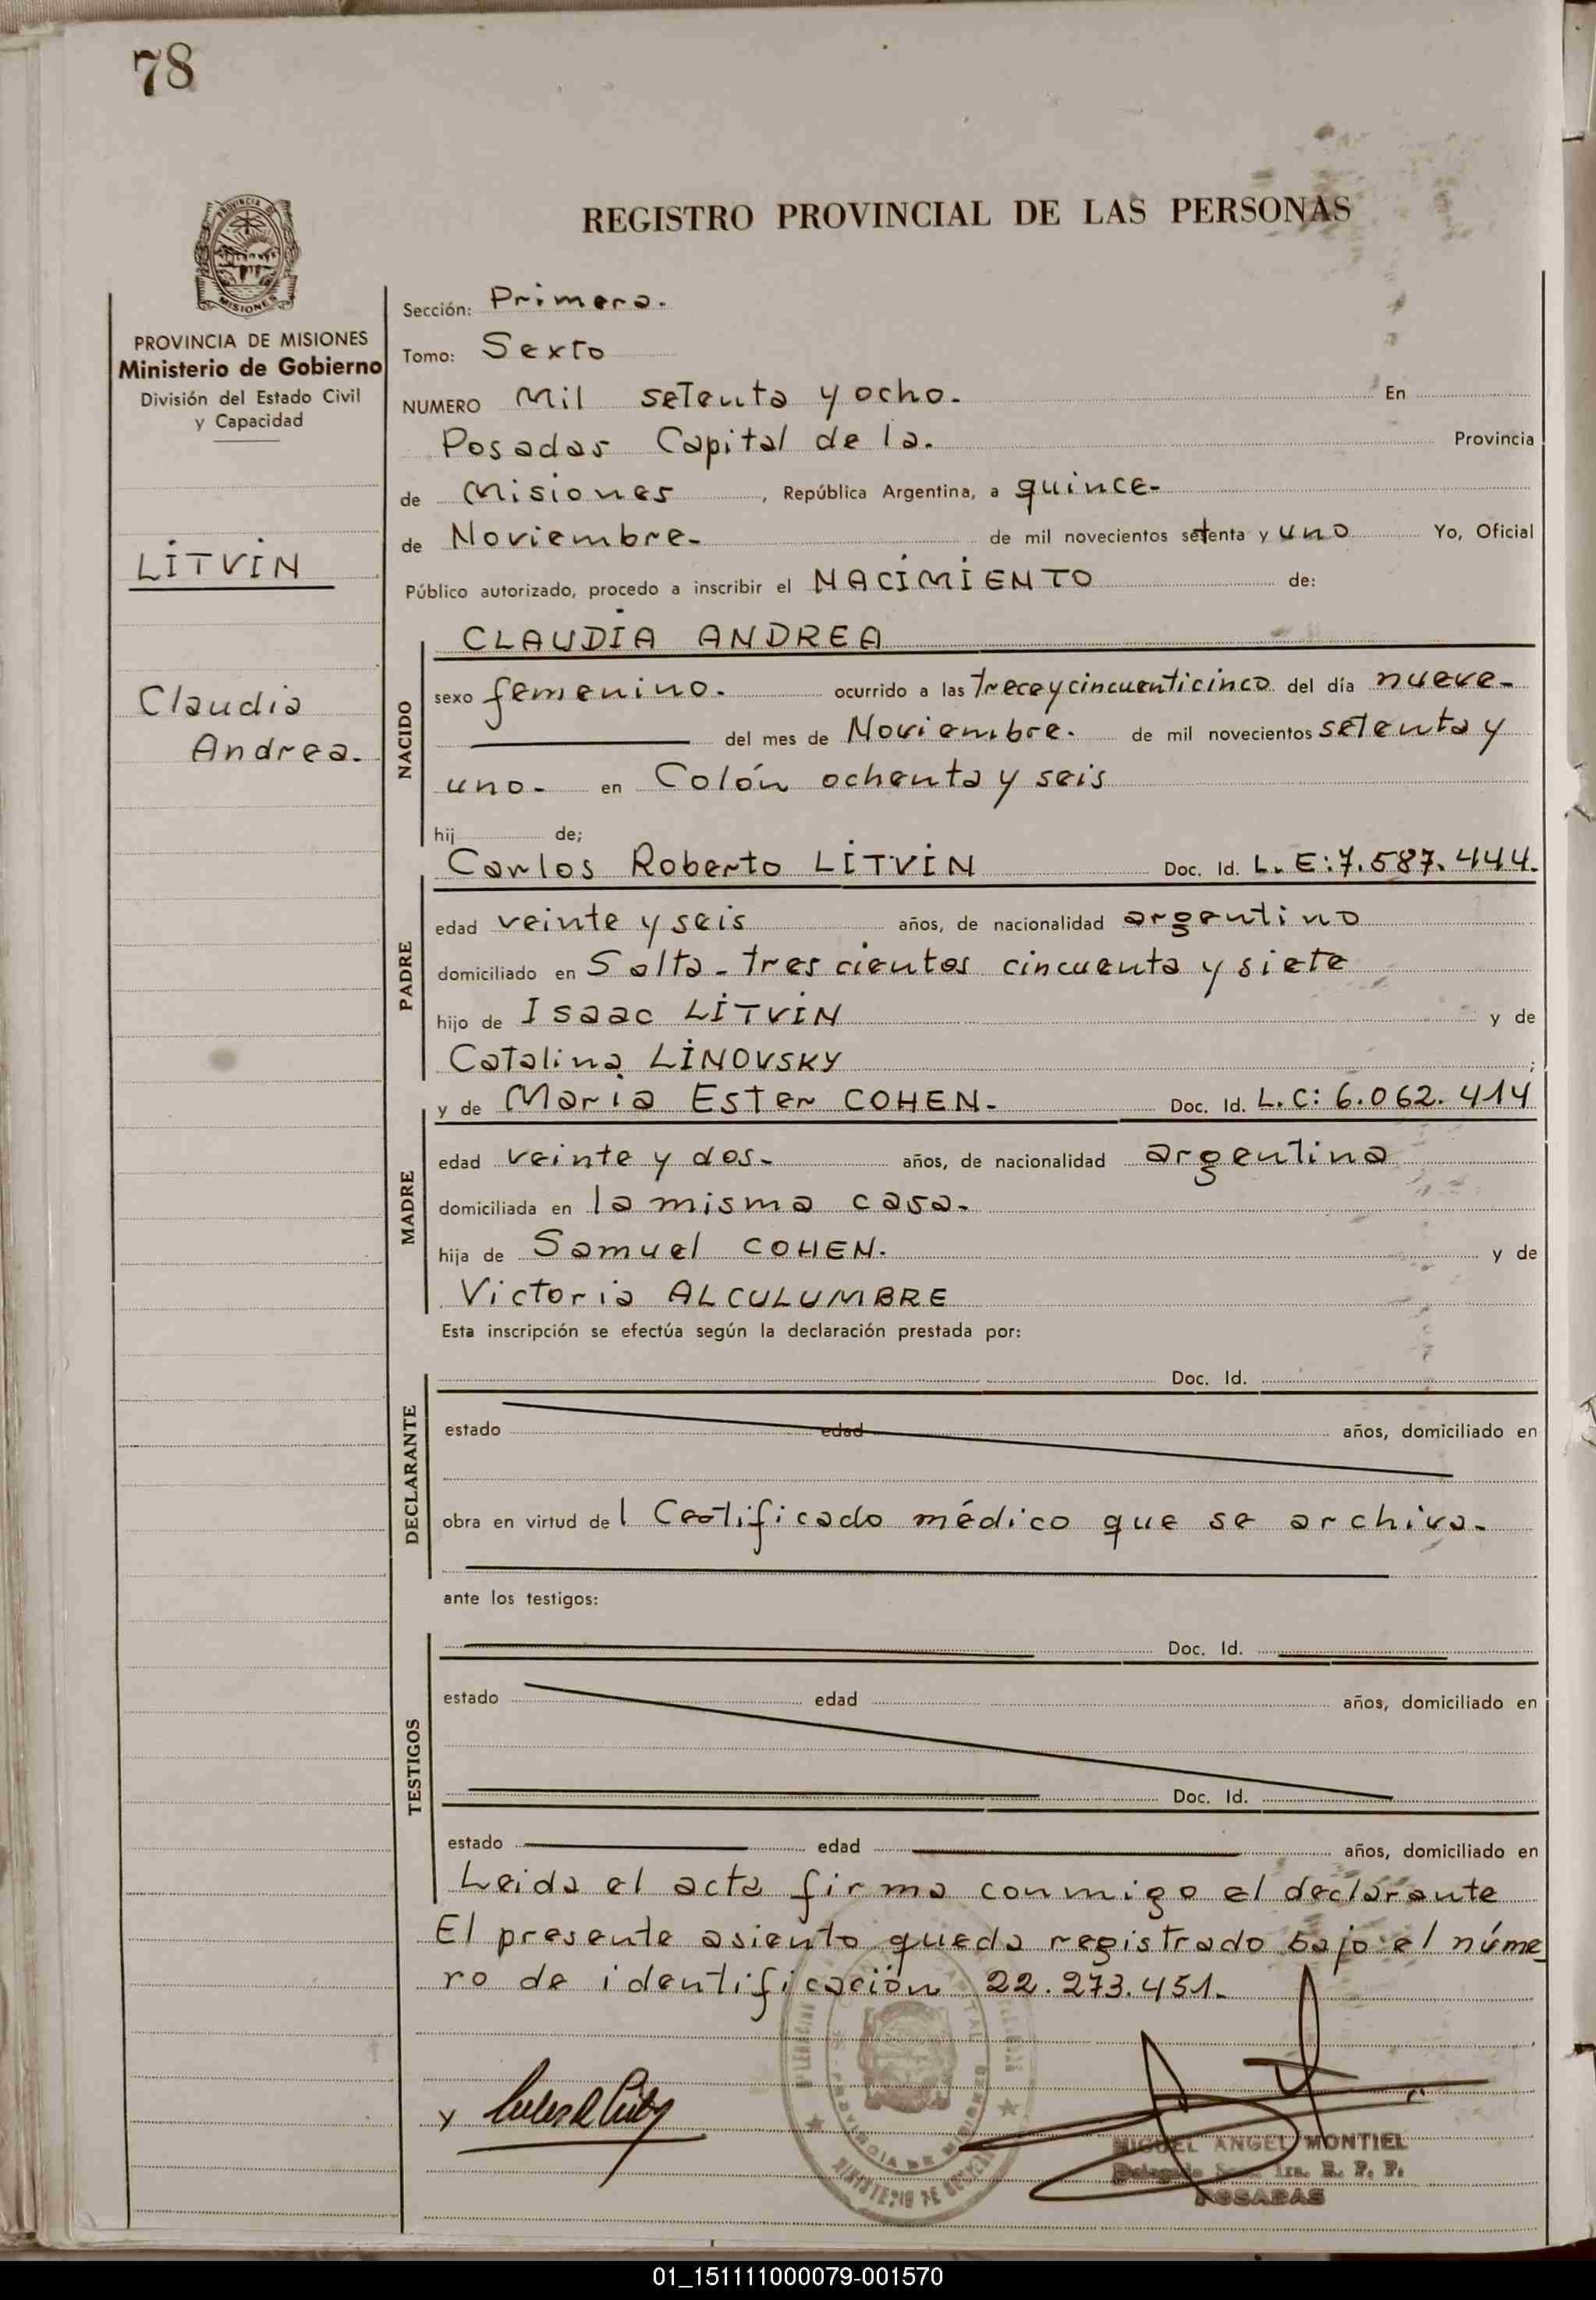 78
PROVINCIA DE
MISIONES
REGISTRO PROVINCIAL DE LAS PERSONAS
PROVINCIA DE MISIONES
Ministerio de Gobierno
División del Estado Civil
y Capacidad
LITVIN
Claudia
Andrea.
Sección: Primera.
Tomo: Sexto
NUMERO Mil setenta y ocho. En
Posadas Capital de la. Provincia
de Misiones, República Argentina, a quince-
de Noviembre- de mil novecientos setenta y uno Yo, Oficial
Público autorizado, procedo a inscribir el NACIMIENTO de:
NACIDO
CLAUDIA ANDREA
sexo femenino. ocurrido a las trece y cincuenticinco del día nueve-
del mes de Noviembre. de mil novecientos setenta y
uno- en Colón ochenta y seis
hij de;
PADRE
Carlos Roberto LITVIN Doc. Id. L. E: 7.587.444.
edad veinte y seis años, de nacionalidad argentino
domiciliado en Salta- tres cientos cincuenta y siete
hijo de Isaac LITVIN y de
Catalina LINOVSKY ;
MADRE
y de Maria Ester COHEN- Doc. Id. L.C: 6.062.414
edad veinte y dos- años, de nacionalidad argentina
domiciliada en la misma casa-
hija de Samuel COHEN. y de
Victoria ALCULUMBRE
Esta inscripción se efectúa según la declaración prestada por:
DECLARANTE
Doc. Id.
estado edad años, domiciliado en
obra en virtud del Certificado médico que se archiva-
ante los testigos:
TESTIGOS
Doc. Id.
estado edad años, domiciliado en
Doc. Id.
estado edad años, domiciliado en
Leida el acta firma conmigo el declarante
El presente asiento queda registrado bajo el núme
ro de identificación 22.273.451-
y
PROVINCIA DE MISIONES
MINISTERIO DE
MIGUEL ANGEL MONTIEL
Delegado Sec. 1ra. R. P. P.
POSADAS
01_151111000079-001570